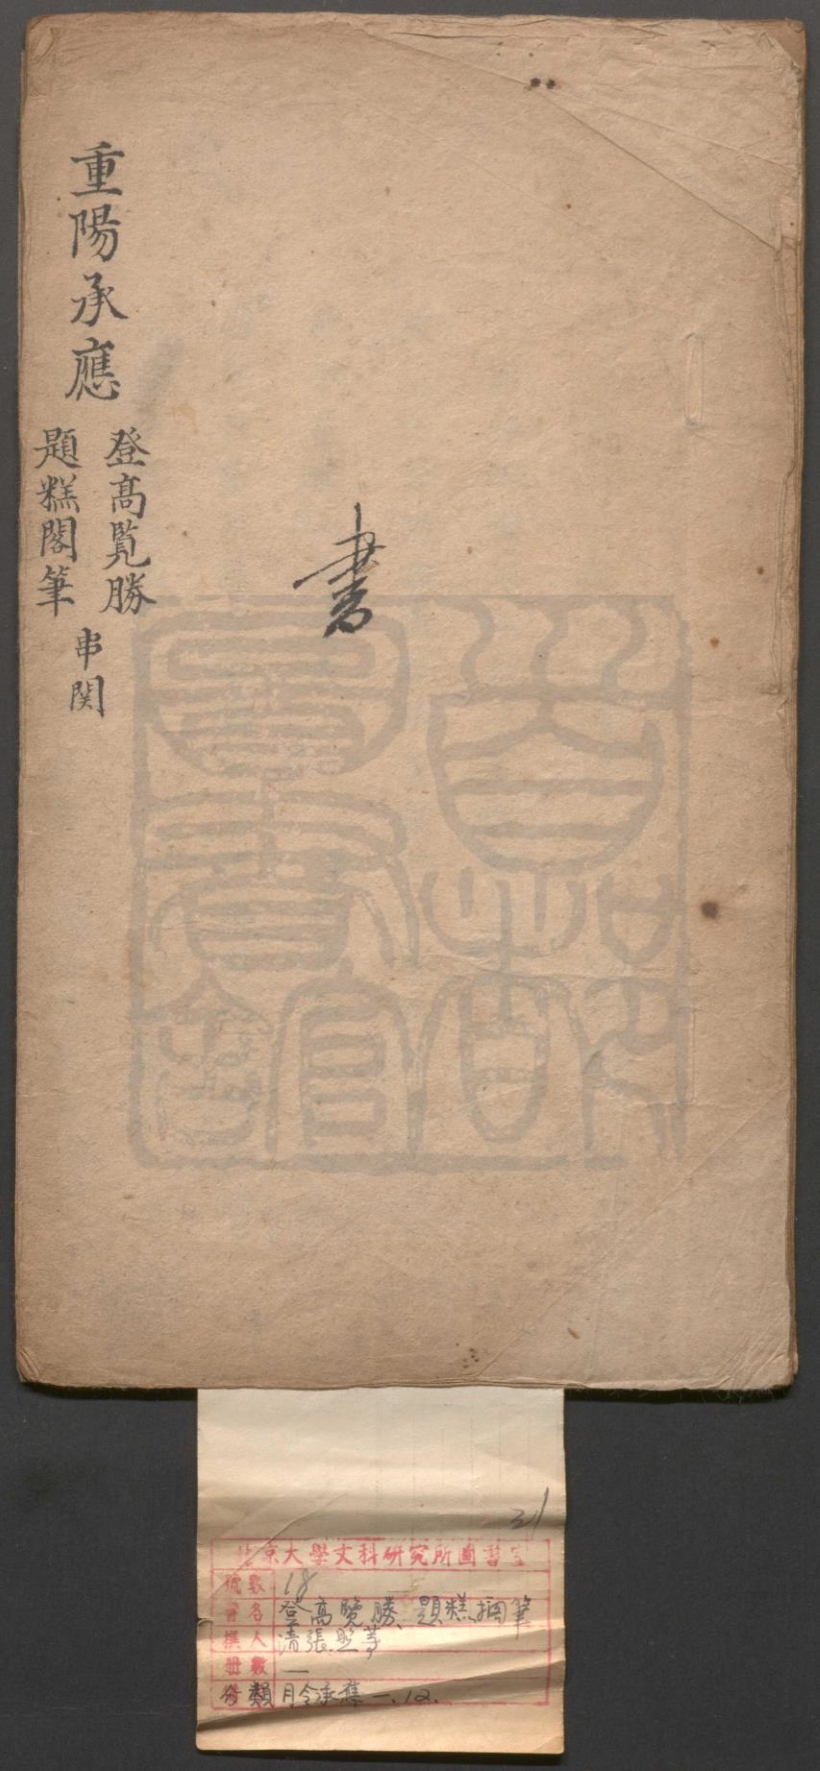 重陽承應
登高覧勝
題糕閣筆
串関
書
21
北京大學文科研究所圖書室
號數 18
書名 登高覽勝、題糕擱筆
撰人 清張照等
冊數 一
分類 月令承應一、12.